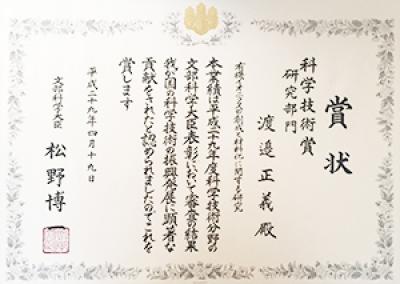 賞状
科学技術賞
研究部門
渡邉正義殿
有機イオニクスの創成と材料化に関する研究
本業績は平成二九年度科学技術分野の
文部科学大臣表彰において審査の結果
我が国の科学技術の振興発展に顕著な
貢献をされたと認められましたのでこれを
賞します
平成二十九年四月十九日
文部科学大臣
松野博